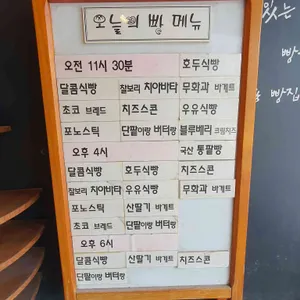 오늘의 빵 메뉴
오전 11시 30분 호두식빵
달콤식빵 찰보리 치아바타 무화과 바게트
초코 브레드 치즈스콘 우유식빵
포노스틱 단팥이랑 버터랑 블루베리 크림치즈
오후 4시 국산 통팥빵
달콤식빵 호두식빵 치즈스콘
찰보리 치아바타 우유식빵 무화과 바게트
포노스틱 산딸기 바게트
초코 브레드 단팥이랑 버터랑
오후 6시
달콤식빵 산딸기 바게트 치즈스콘
단팥이랑 버터랑
있는
빵집